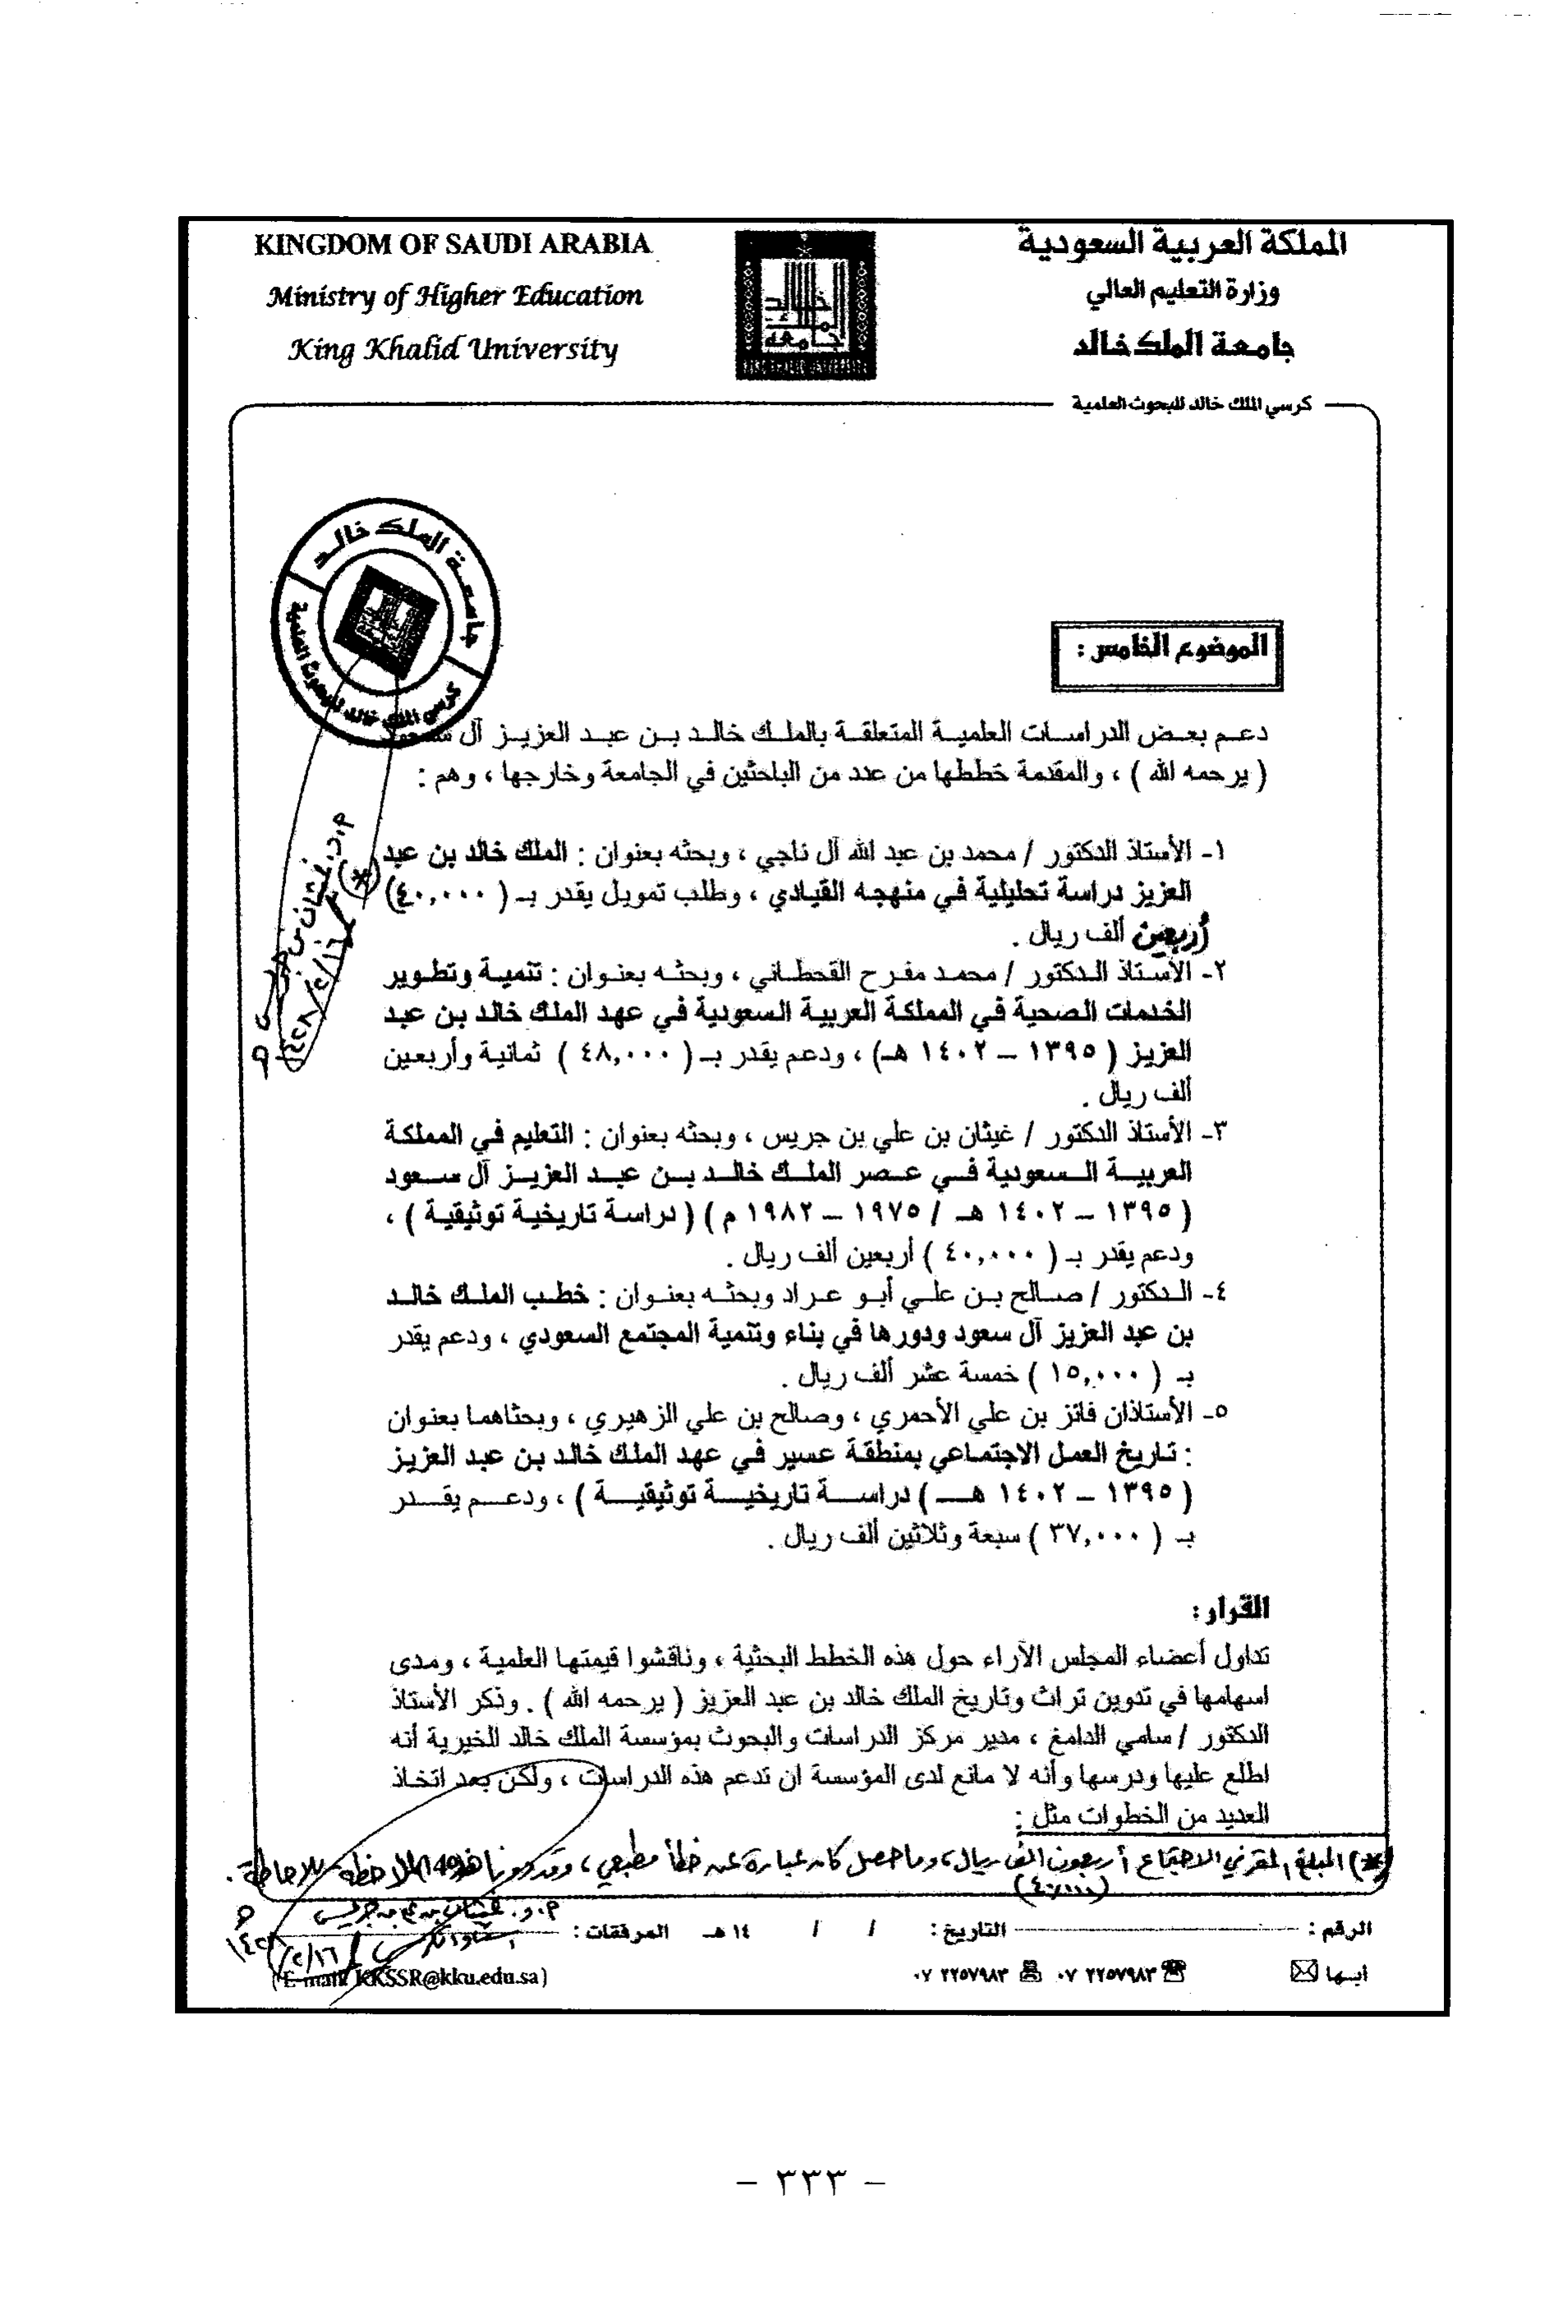 KINGDOM OF SAUDI ARABIA
Ministry of Higher Education
King Khalid University
المملكة العربية السعودية
وزارة التعليم العالي
جامعة الملك خالد
كرسي الملك خالد للبحوث العلمية
جامعة الملك خالد
كرسي الملك خالد للبحوث العلمية
الموضوع الخامس :
دعم بعض الدراسات العلمية المتعلقة بالملك خالد بن عبد العزيز آل سعود
( يرحمه الله ) ، والمقدمة خططها من عدد من الباحثين في الجامعة وخارجها ، وهم :
١- الأستاذ الدكتور / محمد بن عبد الله آل ناجي ، وبحثه بعنوان : الملك خالد بن عبد
العزيز دراسة تحليلية في منهجه القيادي ، وطلب تمويل يقدر بـ ( ٤٠,٠٠٠ ) (*)
أربعين ألف ريال .
٢- الأستاذ الدكتور / محمد مفرح القحطاني ، وبحثه بعنوان : تنمية وتطوير
الخدمات الصحية في المملكة العربية السعودية في عهد الملك خالد بن عبد
العزيز ( ١٣٩٥ – ١٤٠٢ هـ) ، ودعم يقدر بـ ( ٤٨,٠٠٠ ) ثمانية وأربعين
ألف ريال .
٣- الأستاذ الدكتور / غيثان بن علي بن جريس ، وبحثه بعنوان : التعليم في المملكة
العربية السعودية في عصر الملك خالد بن عبد العزيز آل سعود
( ١٣٩٥ – ١٤٠٢ هـ / ١٩٧٥ – ١٩٨٢ م ) ( دراسة تاريخية توثيقية ) ،
ودعم يقدر بـ ( ٤٠,٠٠٠ ) أربعين ألف ريال .
٤- الدكتور / صالح بن علي أبو عراد وبحثه بعنوان : خطب الملك خالد
بن عبد العزيز آل سعود ودورها في بناء وتنمية المجتمع السعودي ، ودعم يقدر
بـ ( ١٥,٠٠٠ ) خمسة عشر ألف ريال .
٥- الأستاذان فائز بن علي الأحمري ، وصالح بن علي الزهيري ، وبحثاهما بعنوان
: تاريخ العمل الاجتماعي بمنطقة عسير في عهد الملك خالد بن عبد العزيز
( ١٣٩٥ – ١٤٠٢ هـ ) دراسة تاريخية توثيقية ) ، ودعم يقدر
بـ ( ٣٧,٠٠٠ ) سبعة وثلاثين ألف ريال .
القرار :
تداول أعضاء المجلس الآراء حول هذه الخطط البحثية ، وناقشوا قيمتها العلمية ، ومدى
اسهامها في تدوين تراث وتاريخ الملك خالد بن عبد العزيز ( يرحمه الله ) . وذكر الأستاذ
الدكتور / سامي الدامغ ، مدير مركز الدراسات والبحوث بمؤسسة الملك خالد الخيرية أنه
اطلع عليها ودرسها وأنه لا مانع لدى المؤسسة ان تدعم هذه الدراسات ، ولكن بعد اتخاذ
العديد من الخطوات مثل :
(*) المبلغ المقر في الاجتماع أربعون ألف ريال ، وما حصل كان عبارة عن خطأ مطبعي ، وقد دونا هذه الملاحظة للإحاطة .
(٤٠,٠٠٠)
أ.د. غيثان بن علي بن جريس
الرقم : التاريخ : / / ١٤ هـ المرفقات :
ابها ٠٧ ٢٢٥٧٩٨٣ ٠٧ ٢٢٥٧٩٨٣ (E-mail: KKSSR@kku.edu.sa)
– ٣٣٣ –